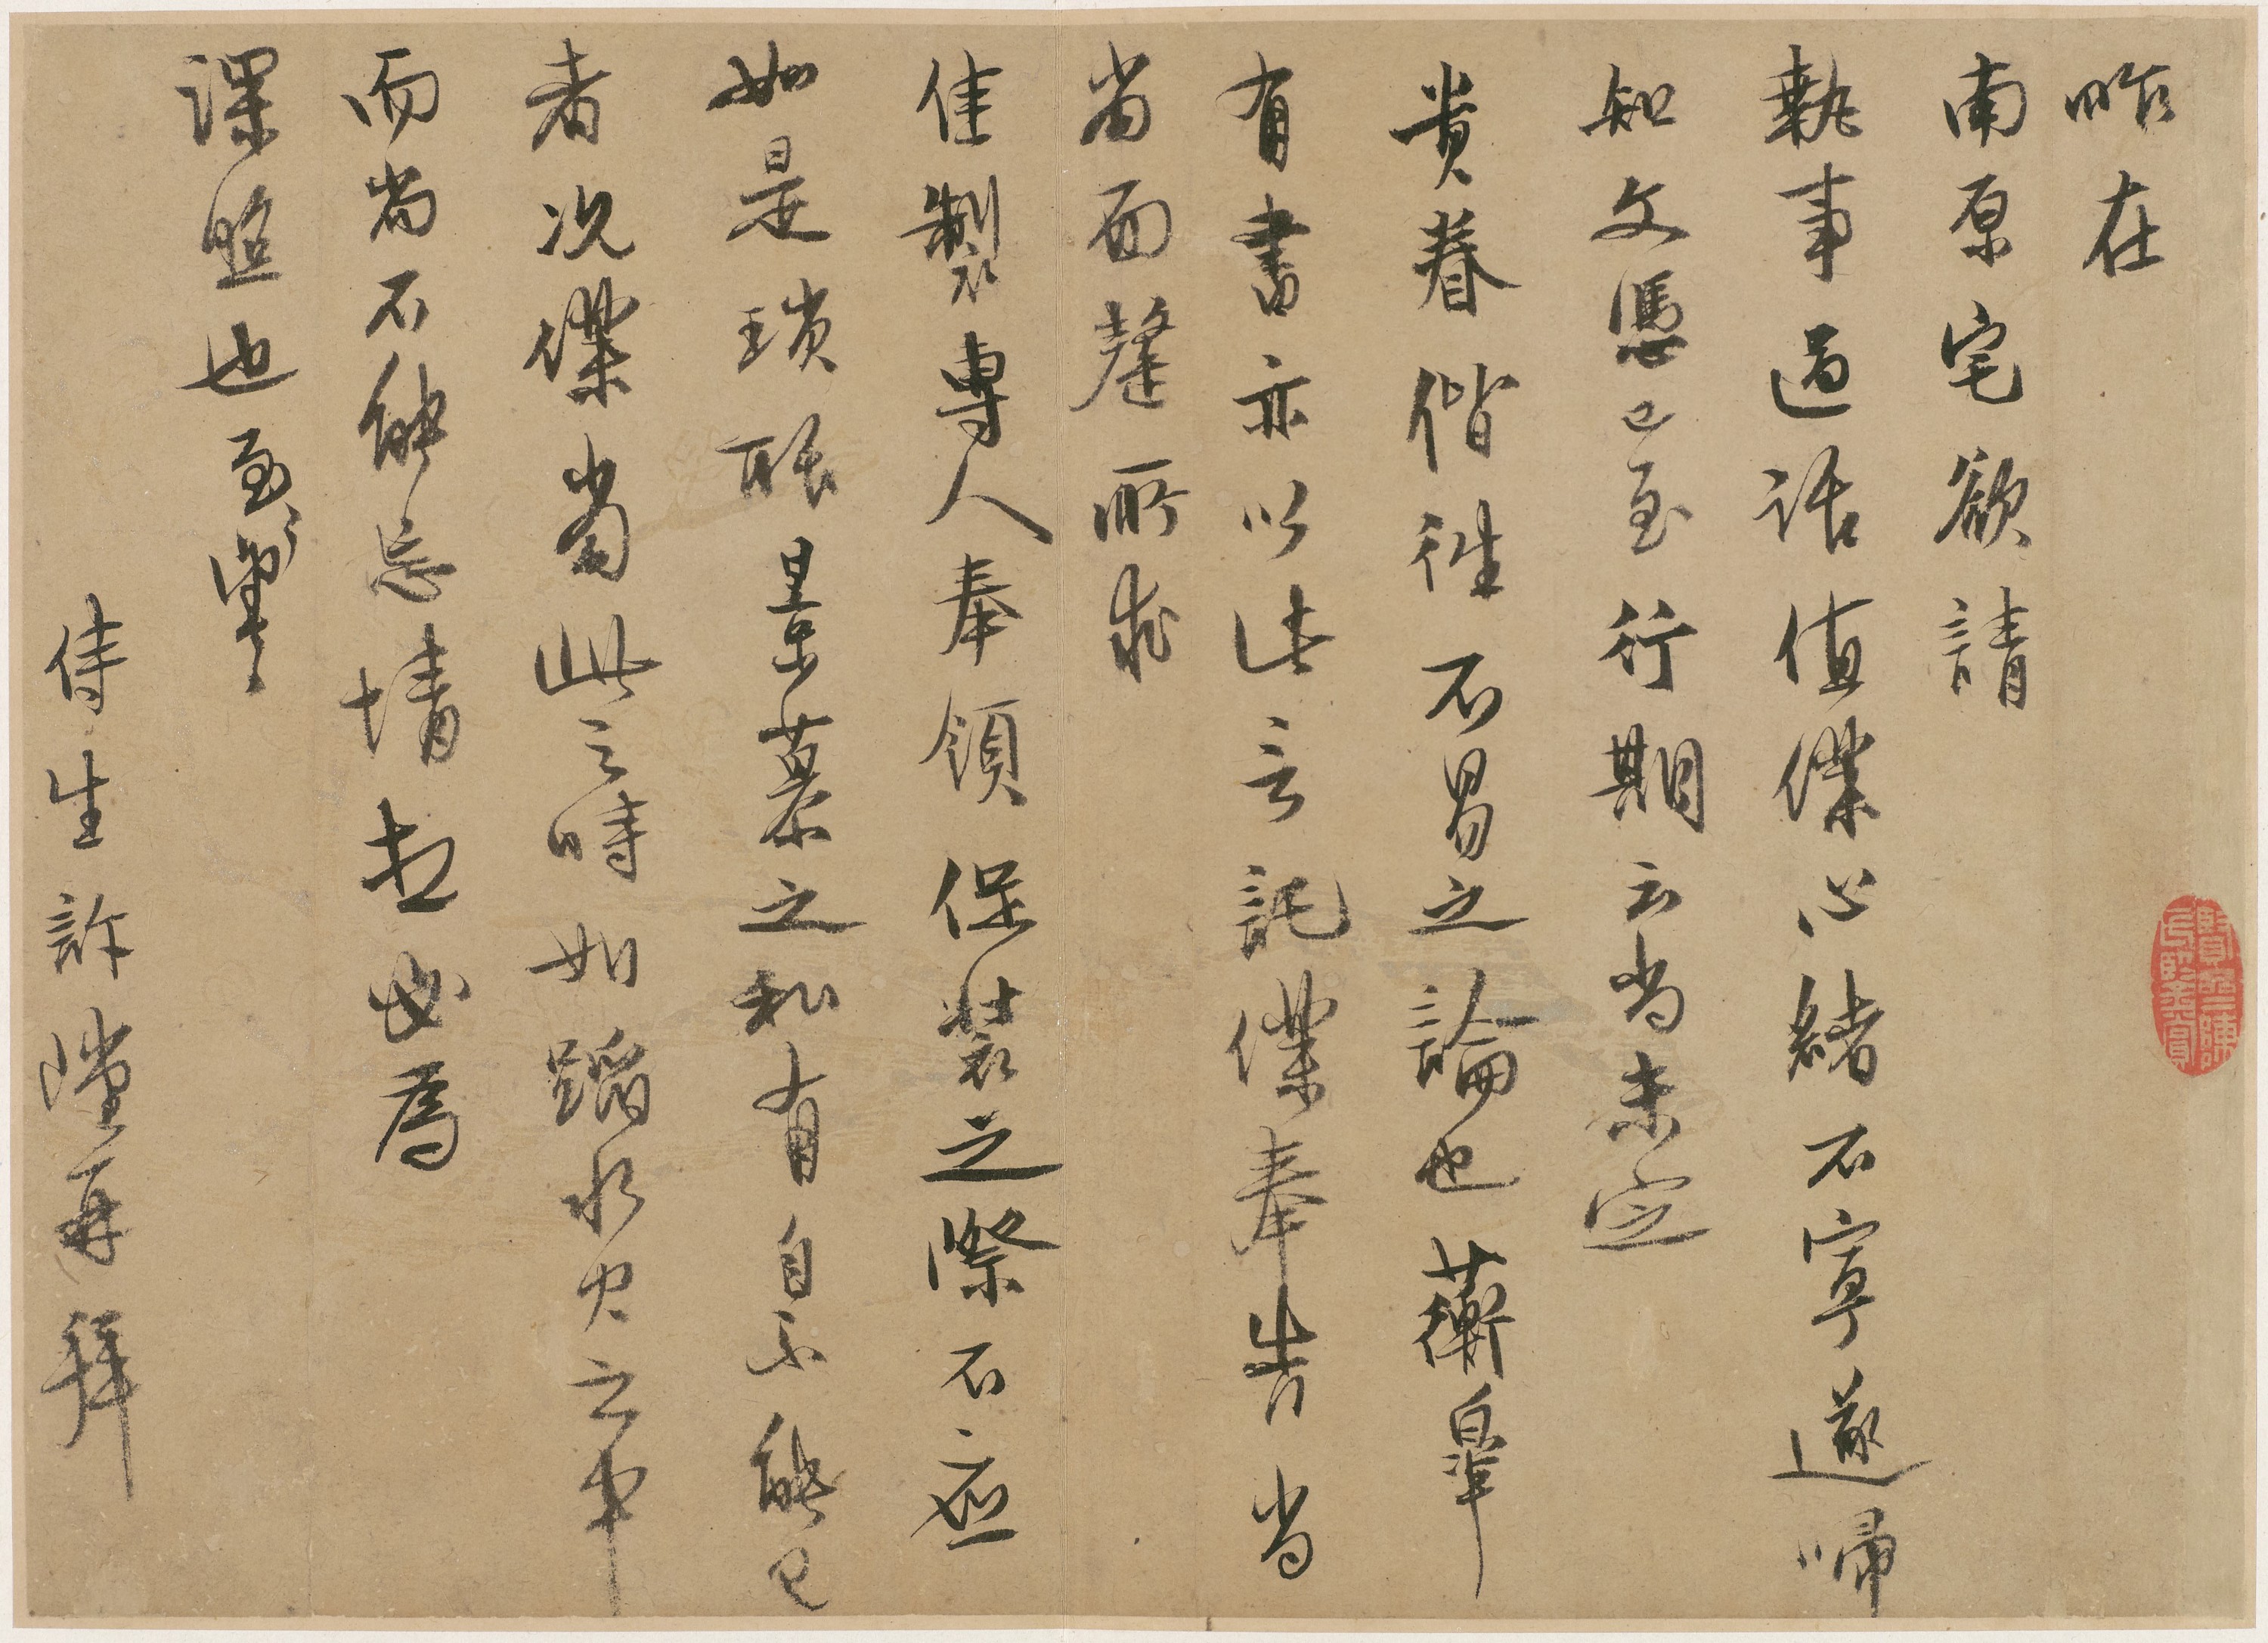 昨在
南原宅欲請
執事過話值僕心緒不寧遂歸
知文憑已至行期云尚未定
貴眷偕往不易之論也蘅皐
有書亦以此言託僕奉告當
當面罄所求
佳製專人奉領促裝之際不應
如是瑣聒景慕之私有自不能已
者況僕當此之時如蹈水火之中
而尚不能忘情想必為
深照也至望至望
侍生許隚再拜